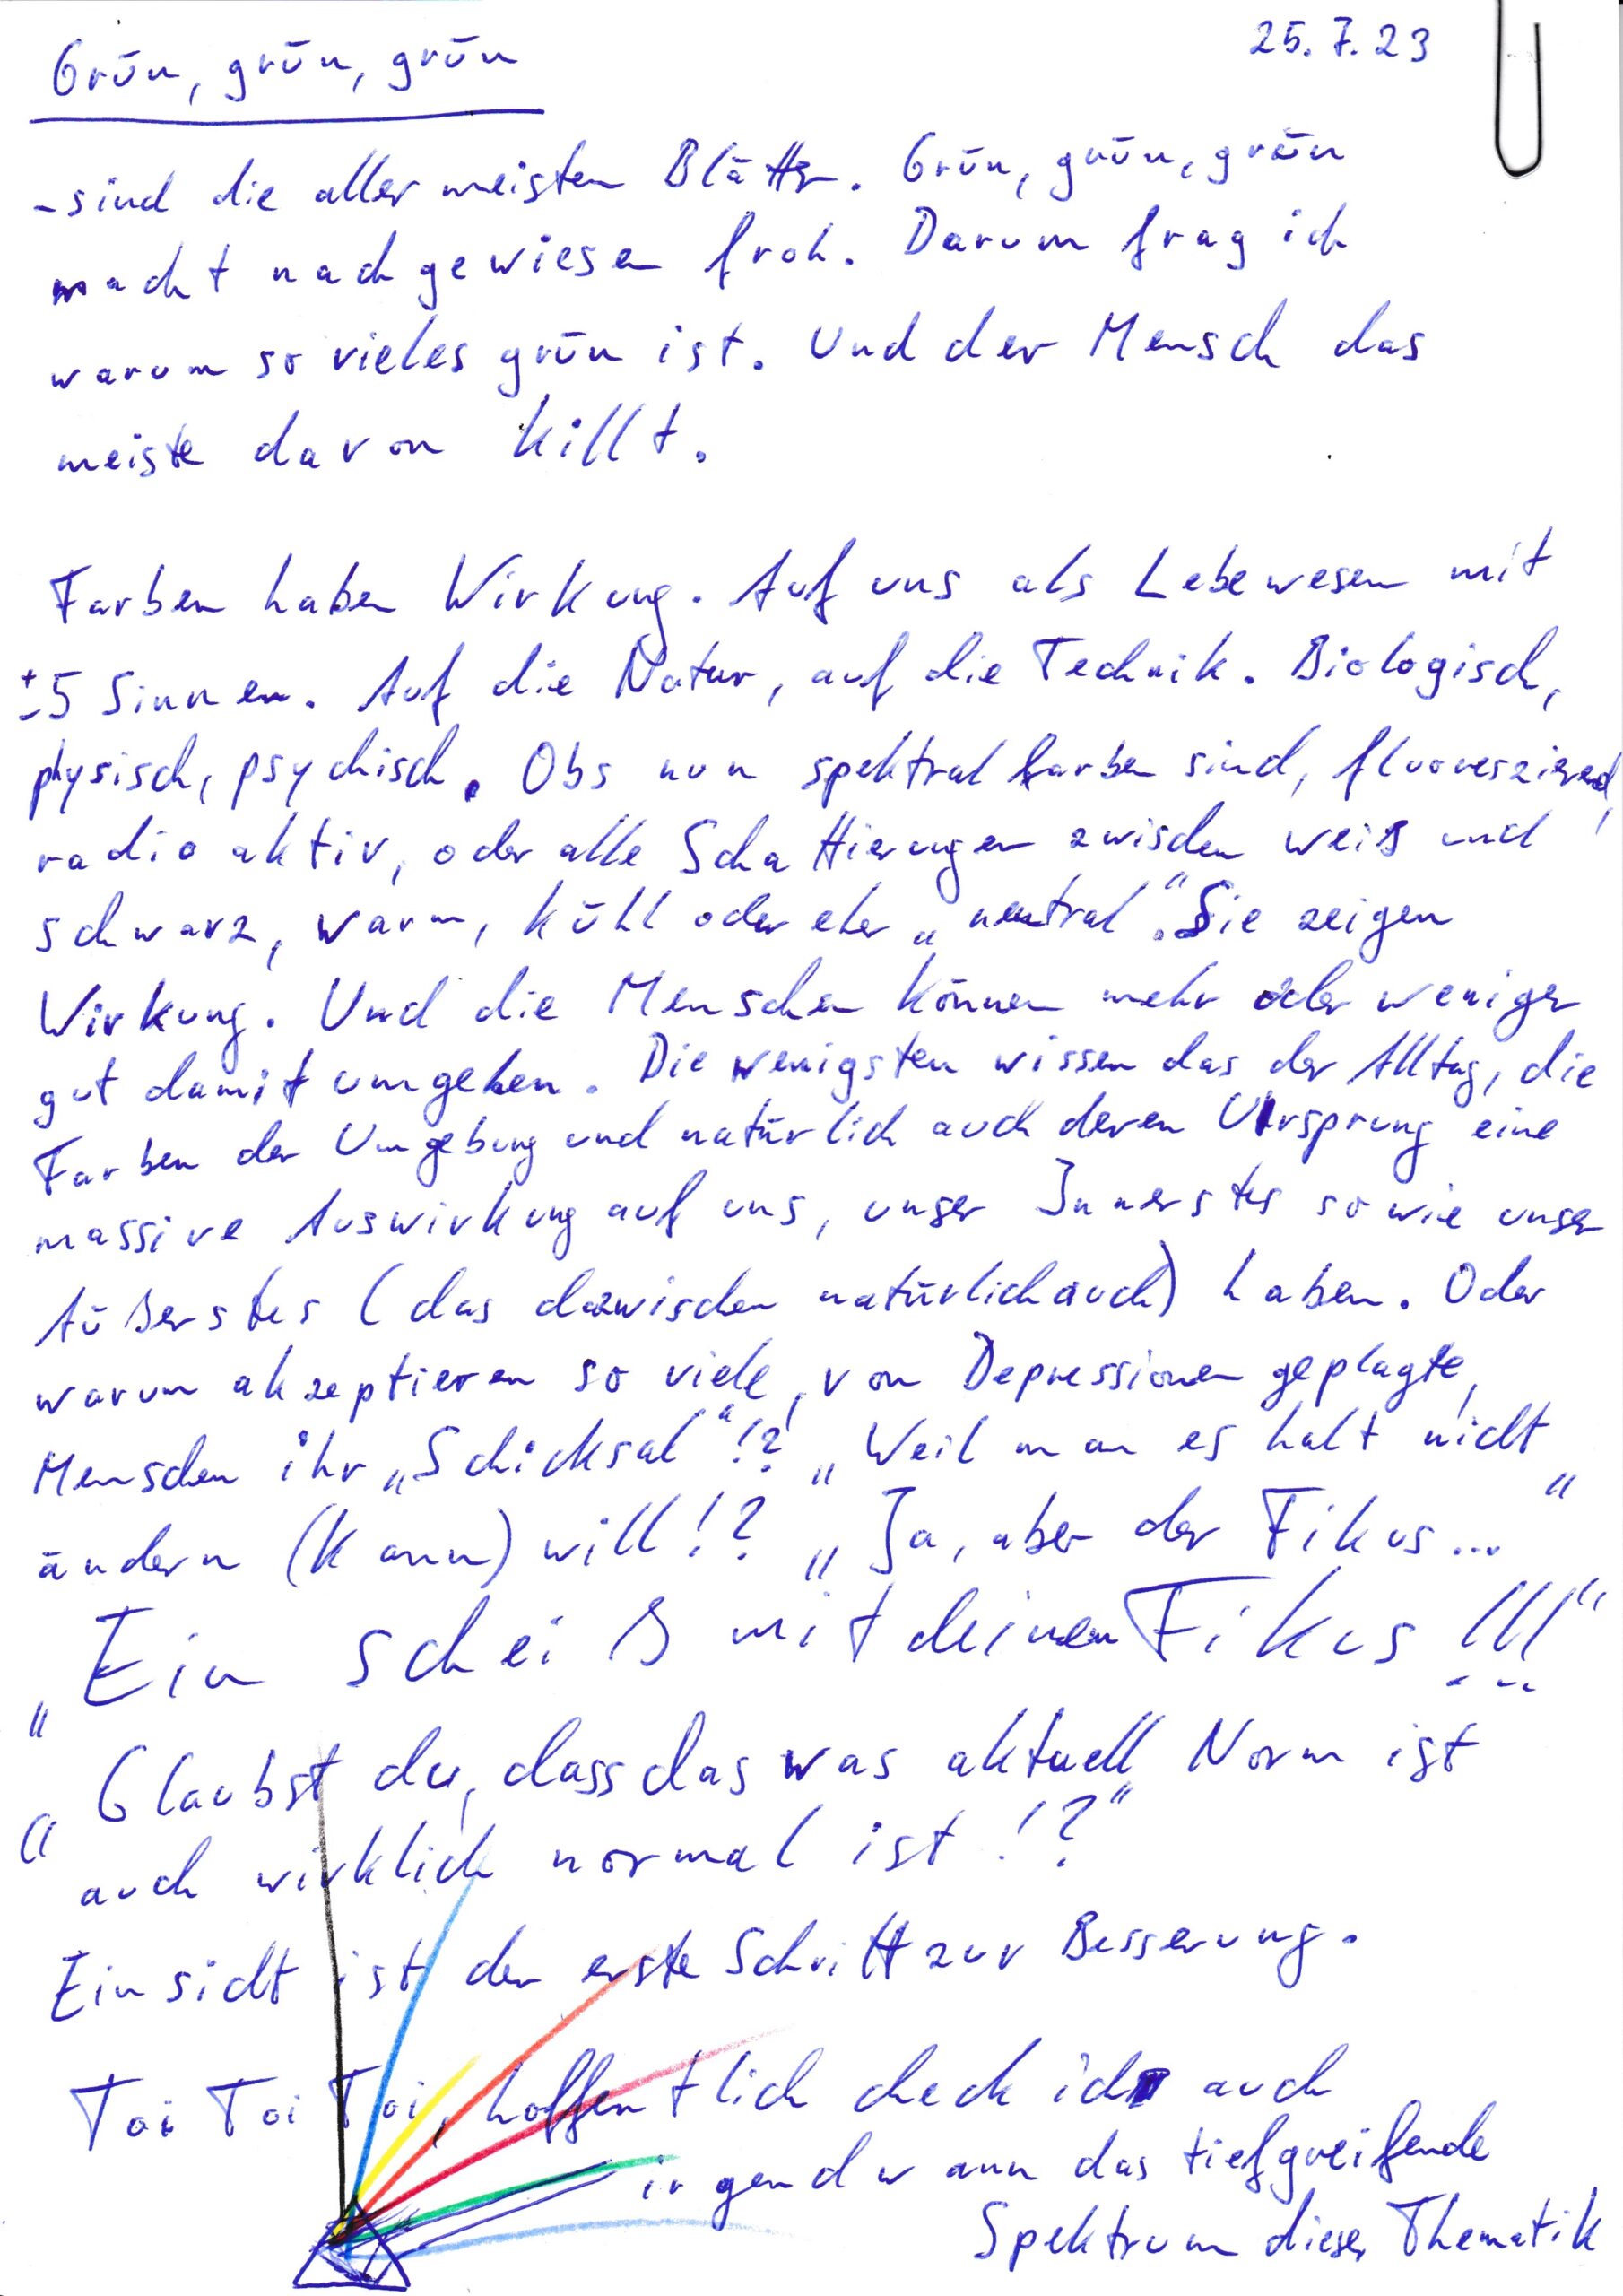 25.7.23
Grün, grün, grün
- sind die aller meisten Blätter. Grün, grün, grün
macht nachgewiesen froh. Darum frag ich
warum so vieles grün ist. Und der Mensch das
meiste davon killt.
Farben haben Wirkung. Auf uns als Lebewesen mit
±5 Sinnen. Auf die Natur, auf die Technik. Biologisch,
physisch, psychisch. Obs nun spektral farben sind, fluoreszierend,
radioaktiv, oder alle Schattierungen zwischen weiß und
schwarz, warm, kühl oder eher „neutral". Sie zeigen
Wirkung. Und die Menschen können mehr oder weniger
gut damit umgehen. Die wenigsten wissen das der Alltag, die
Farben der Umgebung und natürlich auch deren Ursprung eine
massive Auswirkung auf uns, unser Innerstes sowie unser
Äußerstes (das dazwischen natürlich auch) haben. Oder
warum akzeptieren so viele, von Depressionen geplagte,
Menschen ihr „Schicksal"!? „Weil man es halt nicht
ändern (kann) will!? „Ja, aber der Fikus..."
„Ein scheiß mit deinen Fikus!!!"
„Glaubst du, dass das was aktuell Norm ist
auch wirklich normal ist!?"
Einsicht ist der erste Schritt zur Besserung.
Toi Toi Toi, hoffentlich check ich auch
irgendwann das tiefgreifende
Spektrum dieser Thematik